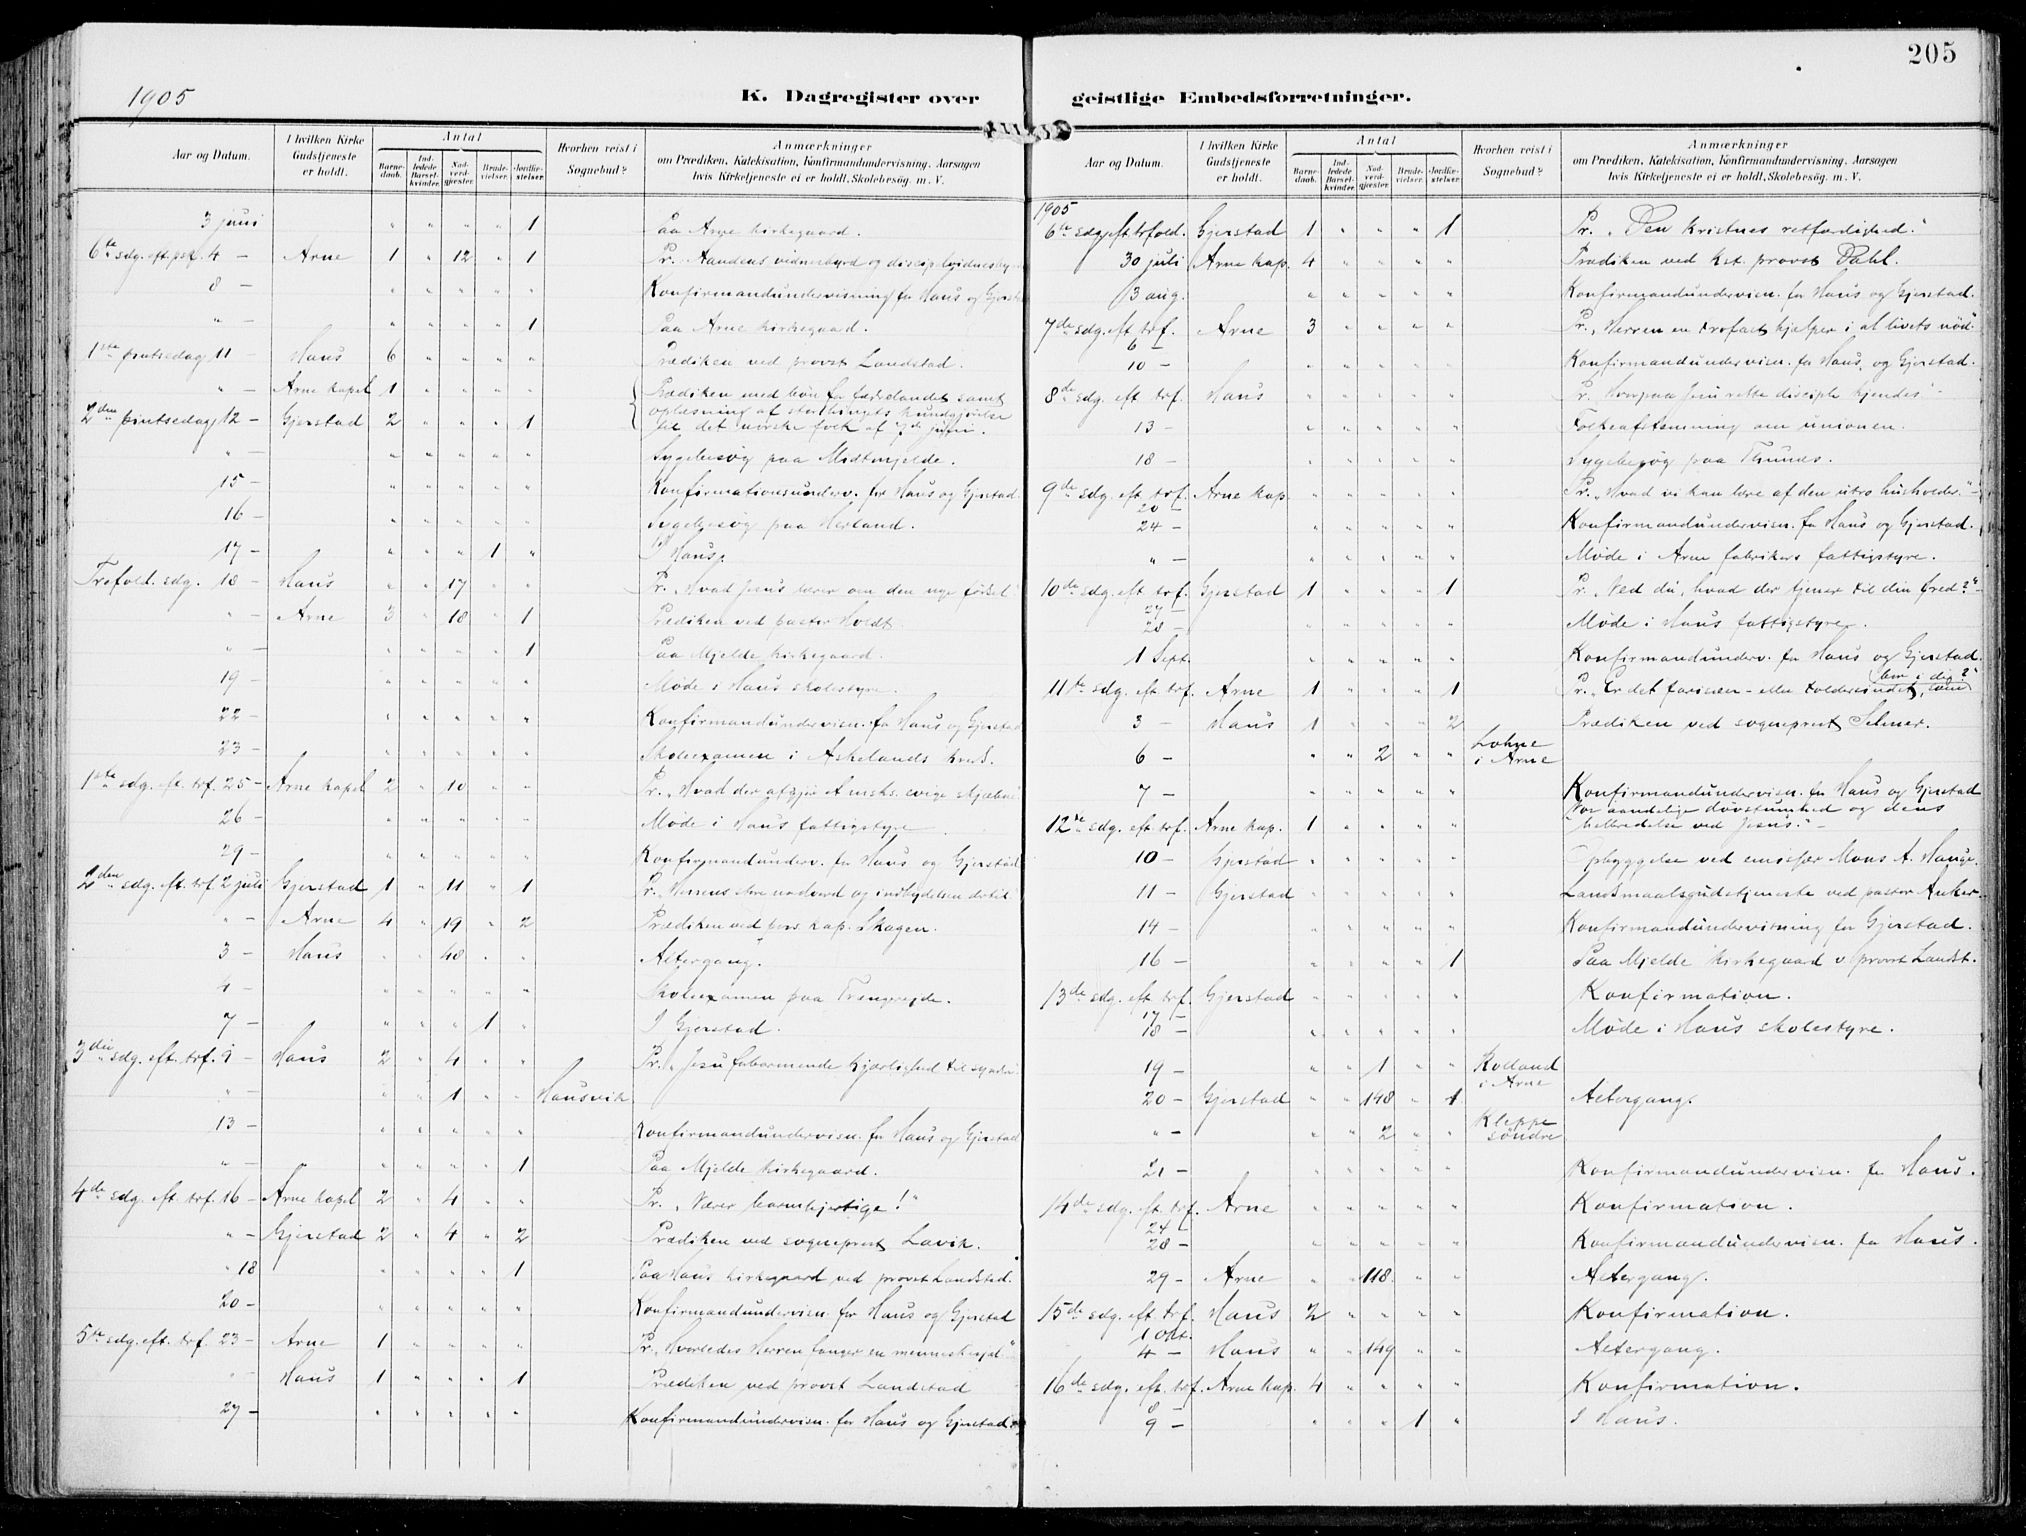 205
1905
K. Dagregister over
geistlige Embedsforretninger.
Aar og Datum.
I hvilken Kirke Gudstjeneste er holdt.
Antal
Barnedaab.
Indledede Barselkvinder.
Nadverdgjester.
Brudevielser.
Jordfæstelser.
Hvorhen reist i Sognebud?
Anmærkninger
om Prædiken, Katekisation, Konfirmandundervisning, Aarsagen
hvis Kirketjeneste ei er holdt, Skolebesøg m. V.
3 juni " " " " 1 Paa Arne kirkegaard.
6te sdg. eft. psk. 4 - Arne 1 " 12 " 1 Pr. Aandens vidnesbyrd og
8 - " " " " " Konfirmandundervisning for Haus og Gjerstad
" - " " " " 1 Paa Arne kirkegaard.
1ste pintsedag, 11 - Haus 6 " " " " Prædiken ved provst Landstad.
" - Arne kapel 1 " " " " Prædiken med bøn for fædrelandet samt
2den pintsedag, 12 - Gjerstad 2 " " " 1 oplæsning af storthingets kundgjørelse
til det norske folk af 7de juni.
" - " " " " " Sygebesøg paa Midtmjelde.
15 - " " " " " Konfirmationsunderv. for Haus og Gjerstad
16 - " " " " " Sygebesøg paa Herland.
17 - " " " 1 " I Haus.
Trefold. sdg. 18 - Haus " " 17 " " Pr. "Hvad Jesus lærer om den nye fødsel"
" - Arne 3 " 18 " 1 Prædiken ved pastor Holdt.
" - " " " " 1 Paa Mjelde kirkegaard.
19 - " " " " " Møde i Haus skolestyre.
22 - " " " " " Konfirmandundervisn. for Haus og Gjerstad
23 - " " " " " Skoleexamen i Askelands kreds.
1ste sdg. eft. trf. 25 - Arne kapel 2 " 10 " " Pr. "Hvad der afgjør et msks. evige skjæbne"
26 - " " " " " Møde i Haus fattigstyre
29 - " " " " " Konfirmandunderv. for Haus og Gjerstad
2den sdg. eft. trf. 2 juli Gjerstad 1 " 11 " 1 Pr. "Herrens store nadverd og indbydelsen dertil"
" - Arne 4 " 19 " 2 Prædiken ved pers. kap. Skagen.
3 - Haus " " 48 " " Altergang.
4 - " " " " " Skoleexamen paa Trengereide.
7 - " " " 1 " I Gjerstad.
3die sdg. eft. trf. 9 - Haus 2 " 4 " " Pr. "Jesu forbarmende kjærlighed til syndere
" - " " 1 " " Hausvik
13 - " " " " " Konfirmandundervisn. for Haus og Gjerstad
" - " " " " 1 Paa Mjelde kirkegaard.
4de sdg. eft. trf. 16 - Arne kapel 2 " 4 " " Pr. "Værer barmhjertige!"
" - Gjerstad 2 " 4 " 2 Prædiken ved sogneprest Lavik.
" 18 " " " " 1 Paa Haus kirkegaard ved provst Landstad.
20 - " " " " " Konfirmandundervisn. for Haus og Gjerstad
5te sdg. eft. trf. 23 - Arne 1 " " " " Pr. "Hvorledes Herren fanger en menneskesjæl"
" - Haus 1 " " " 1 Prædiken ved provst Landstad
27 - " " " " " Konfirmandundervisn. for Haus og Gjerstad.
Aar og Datum.
I hvilken Kirke Gudstjeneste er holdt.
Antal
Barnedaab.
Indledede Barselkvinder.
Nadverdgjester.
Brudevielser.
Jordfæstelser.
Hvorhen reist i Sognebud?
Anmærkninger
om Prædiken, Katekisation, Konfirmandundervisning, Aarsagen
hvis Kirketjeneste ei er holdt, Skolebesøg m. V.
1905
6te sdg. eft. trfold. Gjerstad 1 " " " 1 Pr. "Den kristnes retfærdighed."
30 juli Arne kap. 4 " " " " Prædiken ved kst. provst Dahl.
3 aug. " " " " " Konfirmandundervisn. for Haus og Gjerstad.
7de sdg. eft. trf. Arne 3 " " " " Pr. "Herren en trofast hjelper i al livets nød."
6 -
10 - " " " " " Konfirmandundervisn. for Haus og Gjerstad.
8de sdg. eft. trf. Haus " " " " " Pr. Hvorpaa Jesu rette disciple kjendes"
13 - " " " " " Folkeafstemning om unionen.
18 - " " " " " Sygebesøg paa Thunes.
9de sdg. eft. trf. Arne kap. " " " " " Pr. "Hvad vi kan lære af den utro husholder."
20 -
24 - " " " " " Konfirmandundervisn. for Haus og Gjerstad.
" - " " " " " Møde i Arne fabrikers fattigstyre.
10de sdg. eft. trf. Gjerstad 1 " " " 1 Pr. "Ved du, hvad der tjener til din fred?"
27 -
28 - " " " " " Møde i Haus fattigstyre.
1 Sept. " " " " " Konfirmandunderv. for Haus og Gjerstad.
11te sdg. eft. trf. Arne 1 " " " 1 Pr. "Er det farisæer- eller toldersindet, som
bor i dig?"
3 - Haus 1 " " " 2 Prædiken ved sogneprest Selmer.
6 - " " 2 " " Lohne i Arne
7 - " " " " " Konfirmandundervisn. for Haus og Gjerstad
12te sdg. eft. trf. Arne kap. 1 " " " " Vor aandelige døvstumhed og dens
helbredelse ved Jesus." -
10 - Gjerstad " " " " " Opbyggelse ved emissær Mons A. Hauge.
11 - Gjerstad " " " " " Landsmaalsgudstjeneste ved pastor Anker.
14 - " " " " " Konfirmandundervisning for Gjerstad.
16 - " " " " 1 Paa Mjelde kirkegaard v. provst Landst.
13de sdg. eft. trf. Gjerstad " " " " " Konfirmation.
17 -
18 - " " " " " Møde i Haus skolestyre.
19 - " " 1 " " Rolland i Arne
20 - Gjerstad " " 148 " 1 Altergang.
" - " " 2 " " Kleppe søndre
21 - " " " " " Konfirmandundervisn. for Haus.
14de sdg. eft. trf. Arne " " " " " Konfirmation.
24 -
28 - " " " " " Konfirmandundervisn. for Haus.
29 - Arne " " 118 " " Altergang.
15de sdg. eft. trf. Haus 2 " " " " Konfirmation.
1 Okt.
4 - Haus " " 149 " " Altergang.
16de sdg. eft. trf. Arne kap. 4 " " " " Konfirmation.
8 -
9 - " " " 1 " I Haus.